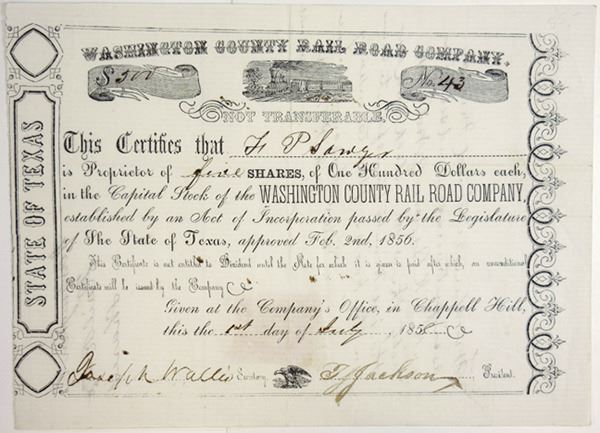 WASHINGTON COUNTY RAIL ROAD COMPANY.
$ 500 No. 43
NOT TRANSFERABLE.
STATE OF TEXAS
This Certifies that F P Sawyr
is Proprietor of five SHARES, of One Hundred Dollars each,
in the Capital Stock of the WASHINGTON COUNTY RAIL ROAD COMPANY
established by an Act of Incorporation passed by the Legislature
of The State of Texas, approved Feb. 2nd, 1856.
This Certificate is not entitled to Dividend until the Note for which it is given is paid after which, an unconditional
Certificate will be issued by the Company
Given at the Company's Office, in Chappell Hill,
this the 1st day of July 1858
Joseph Wallis Secretary. T Jackson President.